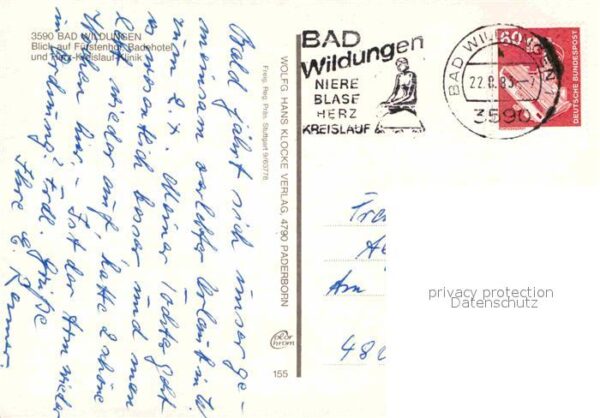 3590 BAD WILDUNGEN
Blick auf Fürstenhof Badehotel
und Herz-Kreislauf-Klinik
Bald jährt sich unser ge-
meinsam erlebter Urlaub in W.
zum 2. x. Meiner Tochter geht
es wesentlich besser und man
lebt wieder auf, hatte 2 schöne
Wochen hier. Ist der Arm wieder
in Ordnung? Frdl. Grüße
Ihre E.
WOLFG. HANS KLOCKE VERLAG, 4790 PADERBORN
Freig. Reg. Präs. Stuttgart 9/63778
color
chrom
155
BAD
Wildungen
NIERE
BLASE
HERZ
KREISLAUF
BAD WILDUNGEN 1
22.8.83
3590
60
DEUTSCHE BUNDESPOST
Am
480
privacy protection
Datenschutz